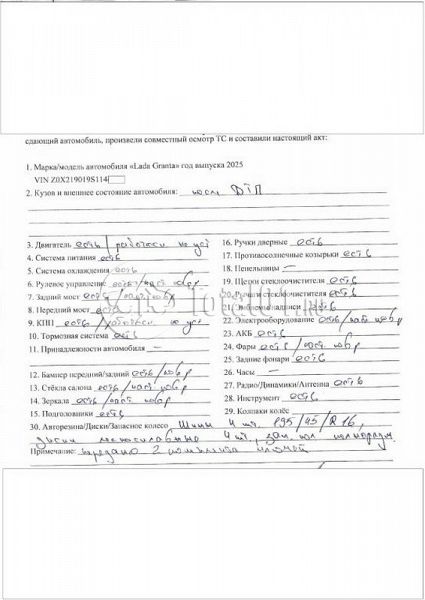 сдающий автомобиль, произвели совместный осмотр ТС и составили настоящий акт:
1. Марка/модель автомобиля «Lada Granta» год выпуска 2025
VIN Z0X219019S114
2. Кузов и внешнее состояние автомобиля: после ДТП
3. Двигатель есть / работоск не уст
4. Система питания есть
5. Система охлаждения есть
6. Рулевое управление есть / част повр
7. Задний мост есть / част повр
8. Передний мост есть
9. КПП есть / работоск не уст
10. Тормозная система есть
11. Принадлежности автомобиля —
12. Бампер передний/задний есть / част повр
13. Стёкла салона есть / част повр
14. Зеркала есть / част повр
15. Подголовники есть
16. Ручки дверные есть
17. Противосолнечные козырьки есть
18. Пепельницы —
19. Щеток стеклоочистителя есть
20. Рычаги стеклоочистителя есть
21. Эмблемы/надписи есть
22. Электрооборудование есть / част повр
23. АКБ есть
24. Фары есть / част повр
25. Задние фонари есть
26. Часы —
27. Радио/Динамики/Антенна есть
28. Инструмент есть
29. Колпаки колёс
30. Авторезина/Диски/Запасное колесо Шины 4 шт. 195/45/R16,
диски легкосплавные 4 шт, зап. кол
Примечание: передано 2 комплекта ключей